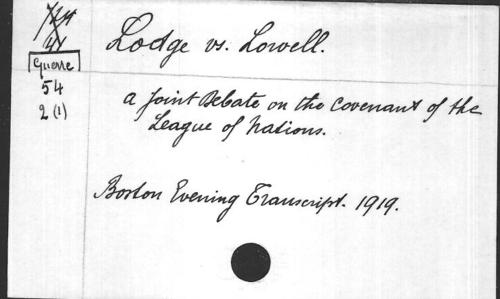 Lodge vs. Lowell.
Guerre
54
2 (1)
a Joint Debate on the Covenant of the
League of Nations.
Boston Evening Transcript. 1919.